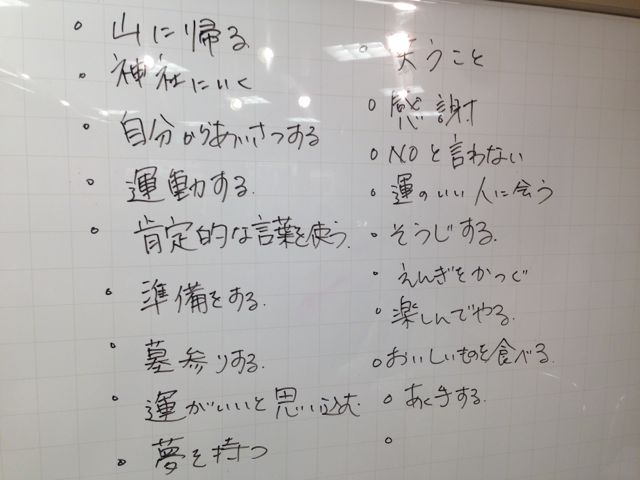 ○ 山に帰る
○ 神社にいく
○ 自分からあいさつする
○ 運動する.
○ 肯定的な言葉を使う.
○ 準備をする.
○ 墓参りする.
○ 運がいいと思い込む.
○ 夢を持つ
○ うこと
○ 感謝
○ NOと言わない
○ 運のいい人に会う
○ そうじする.
○ えんぎをかつぐ
○ 楽しんでやる.
○ おいしいものを食べる.
○ あく手する.
○